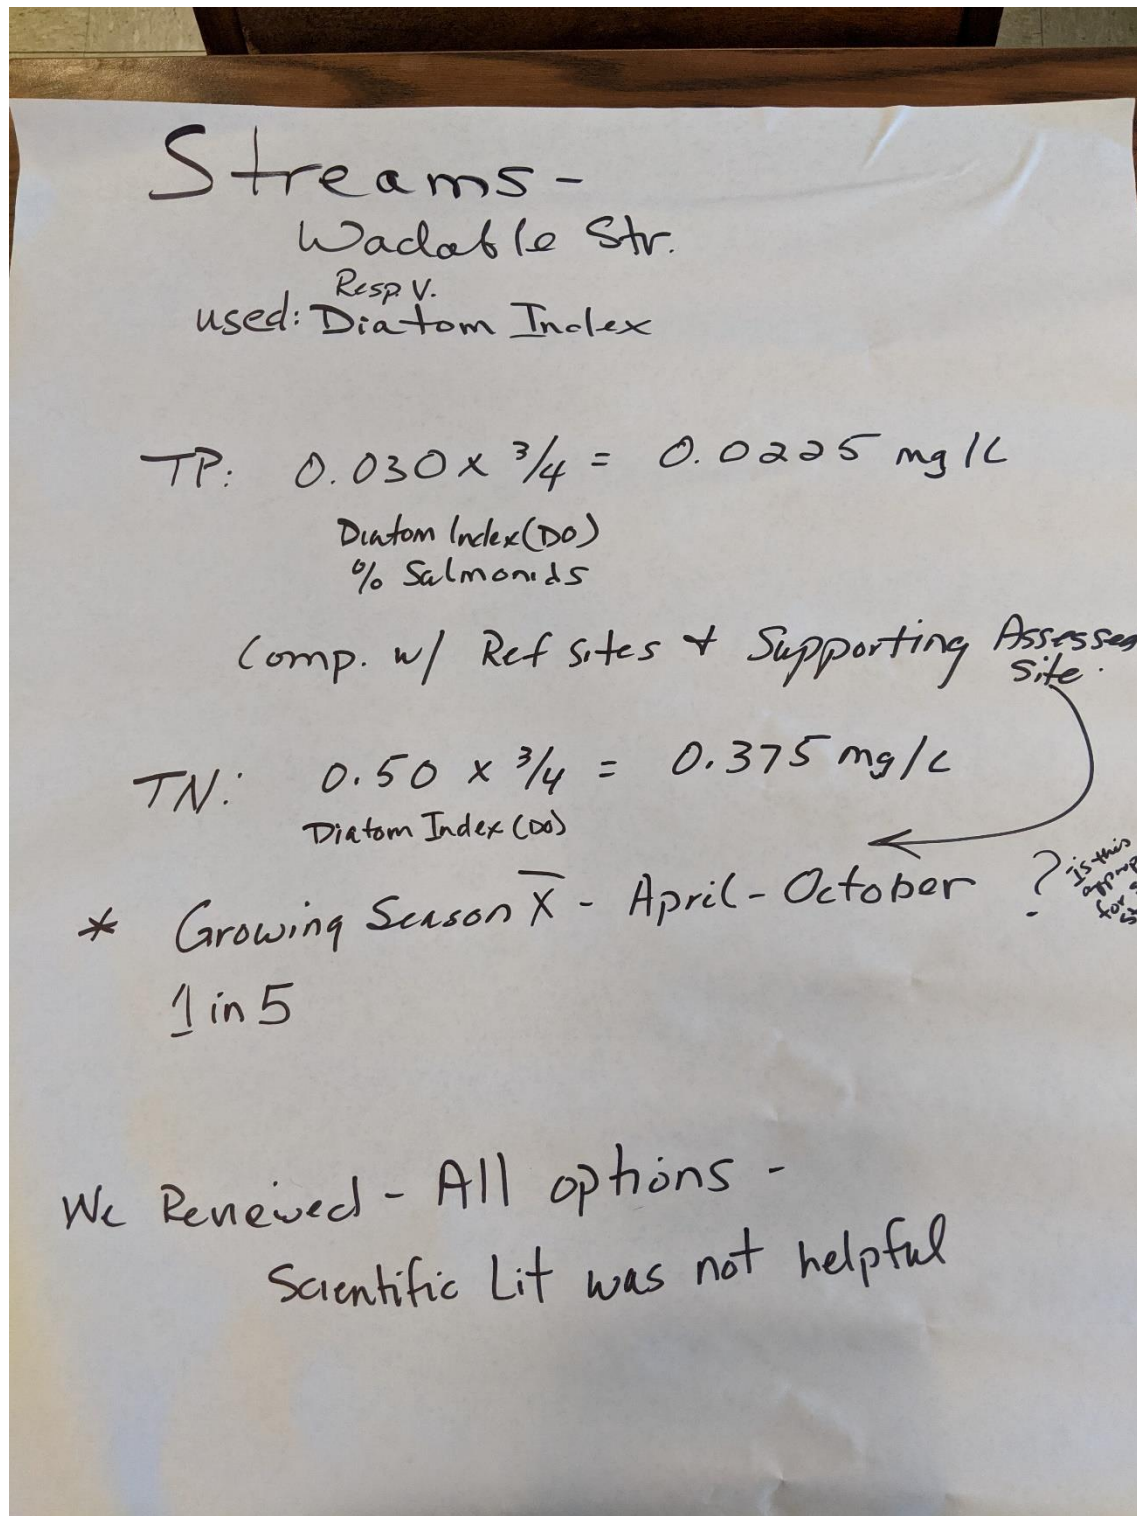 Streams -
Wadable Str.
Resp. V.
used: Diatom Index
TP: 0.030 x 3/4 = 0.0225 mg/L
Diatom Index (DO)
% Salmonids
Comp. w/ Ref sites + Supporting Assessed
Site.
TN: 0.50 x 3/4 = 0.375 mg/L
Diatom Index (DO)
* Growing Season X̅ - April - October ?
Is this
for
1 in 5
We Reviewed - All options -
Scientific Lit was not helpful